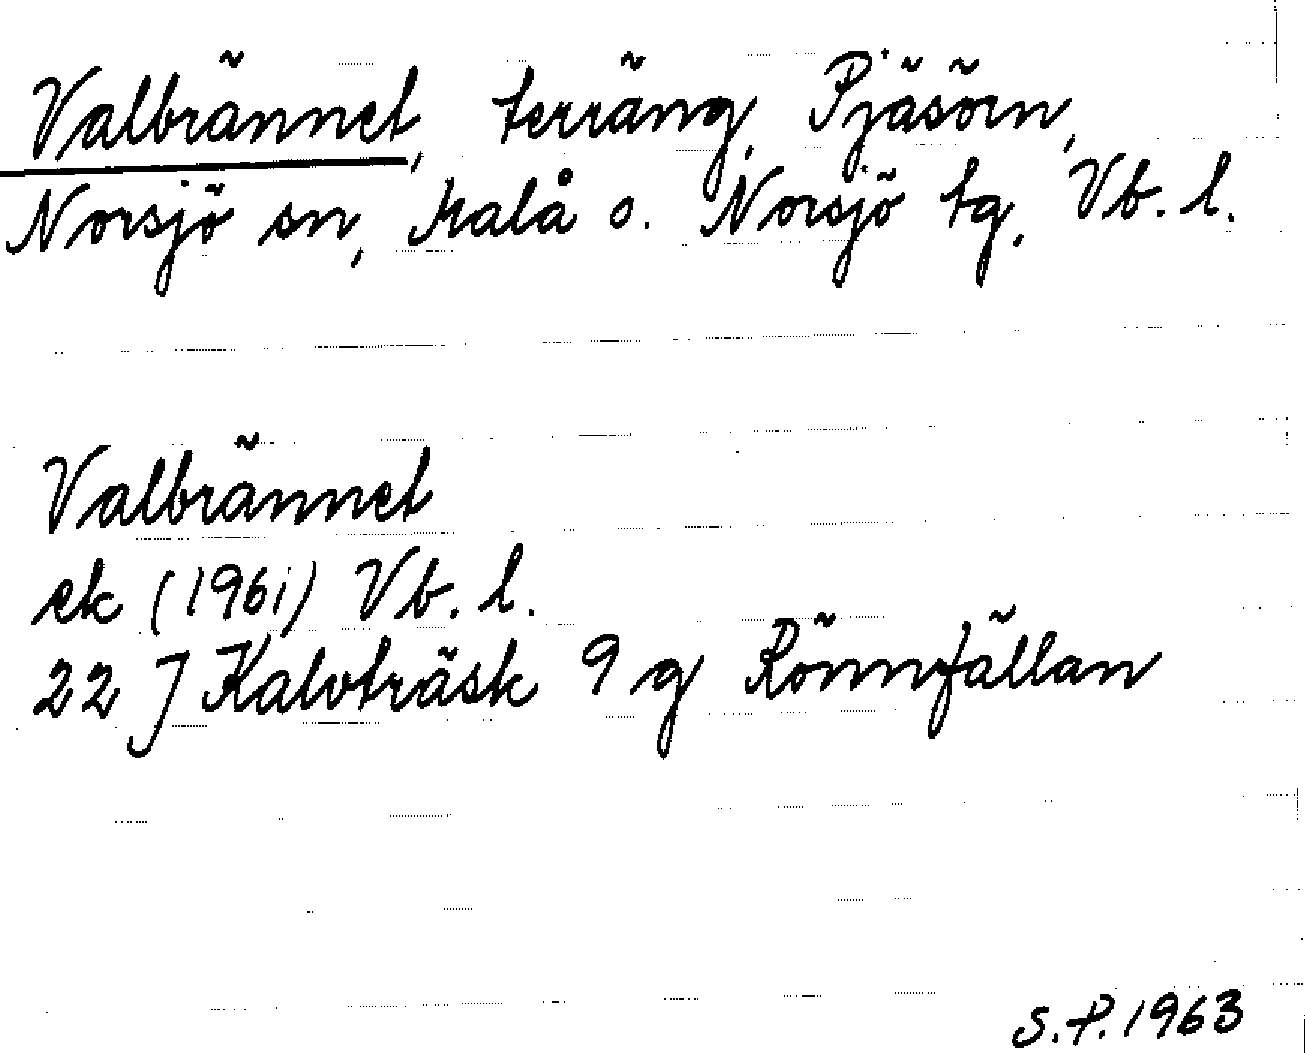 Valbrännet, terräng, Pjäsörn,
Norsjö sn, Malå o. Norsjö tg, Vb. l.
Valbrännet
ek (1961) Vb. l.
22 J Kalvträsk 9 g Rönnfällan
S.P. 1963